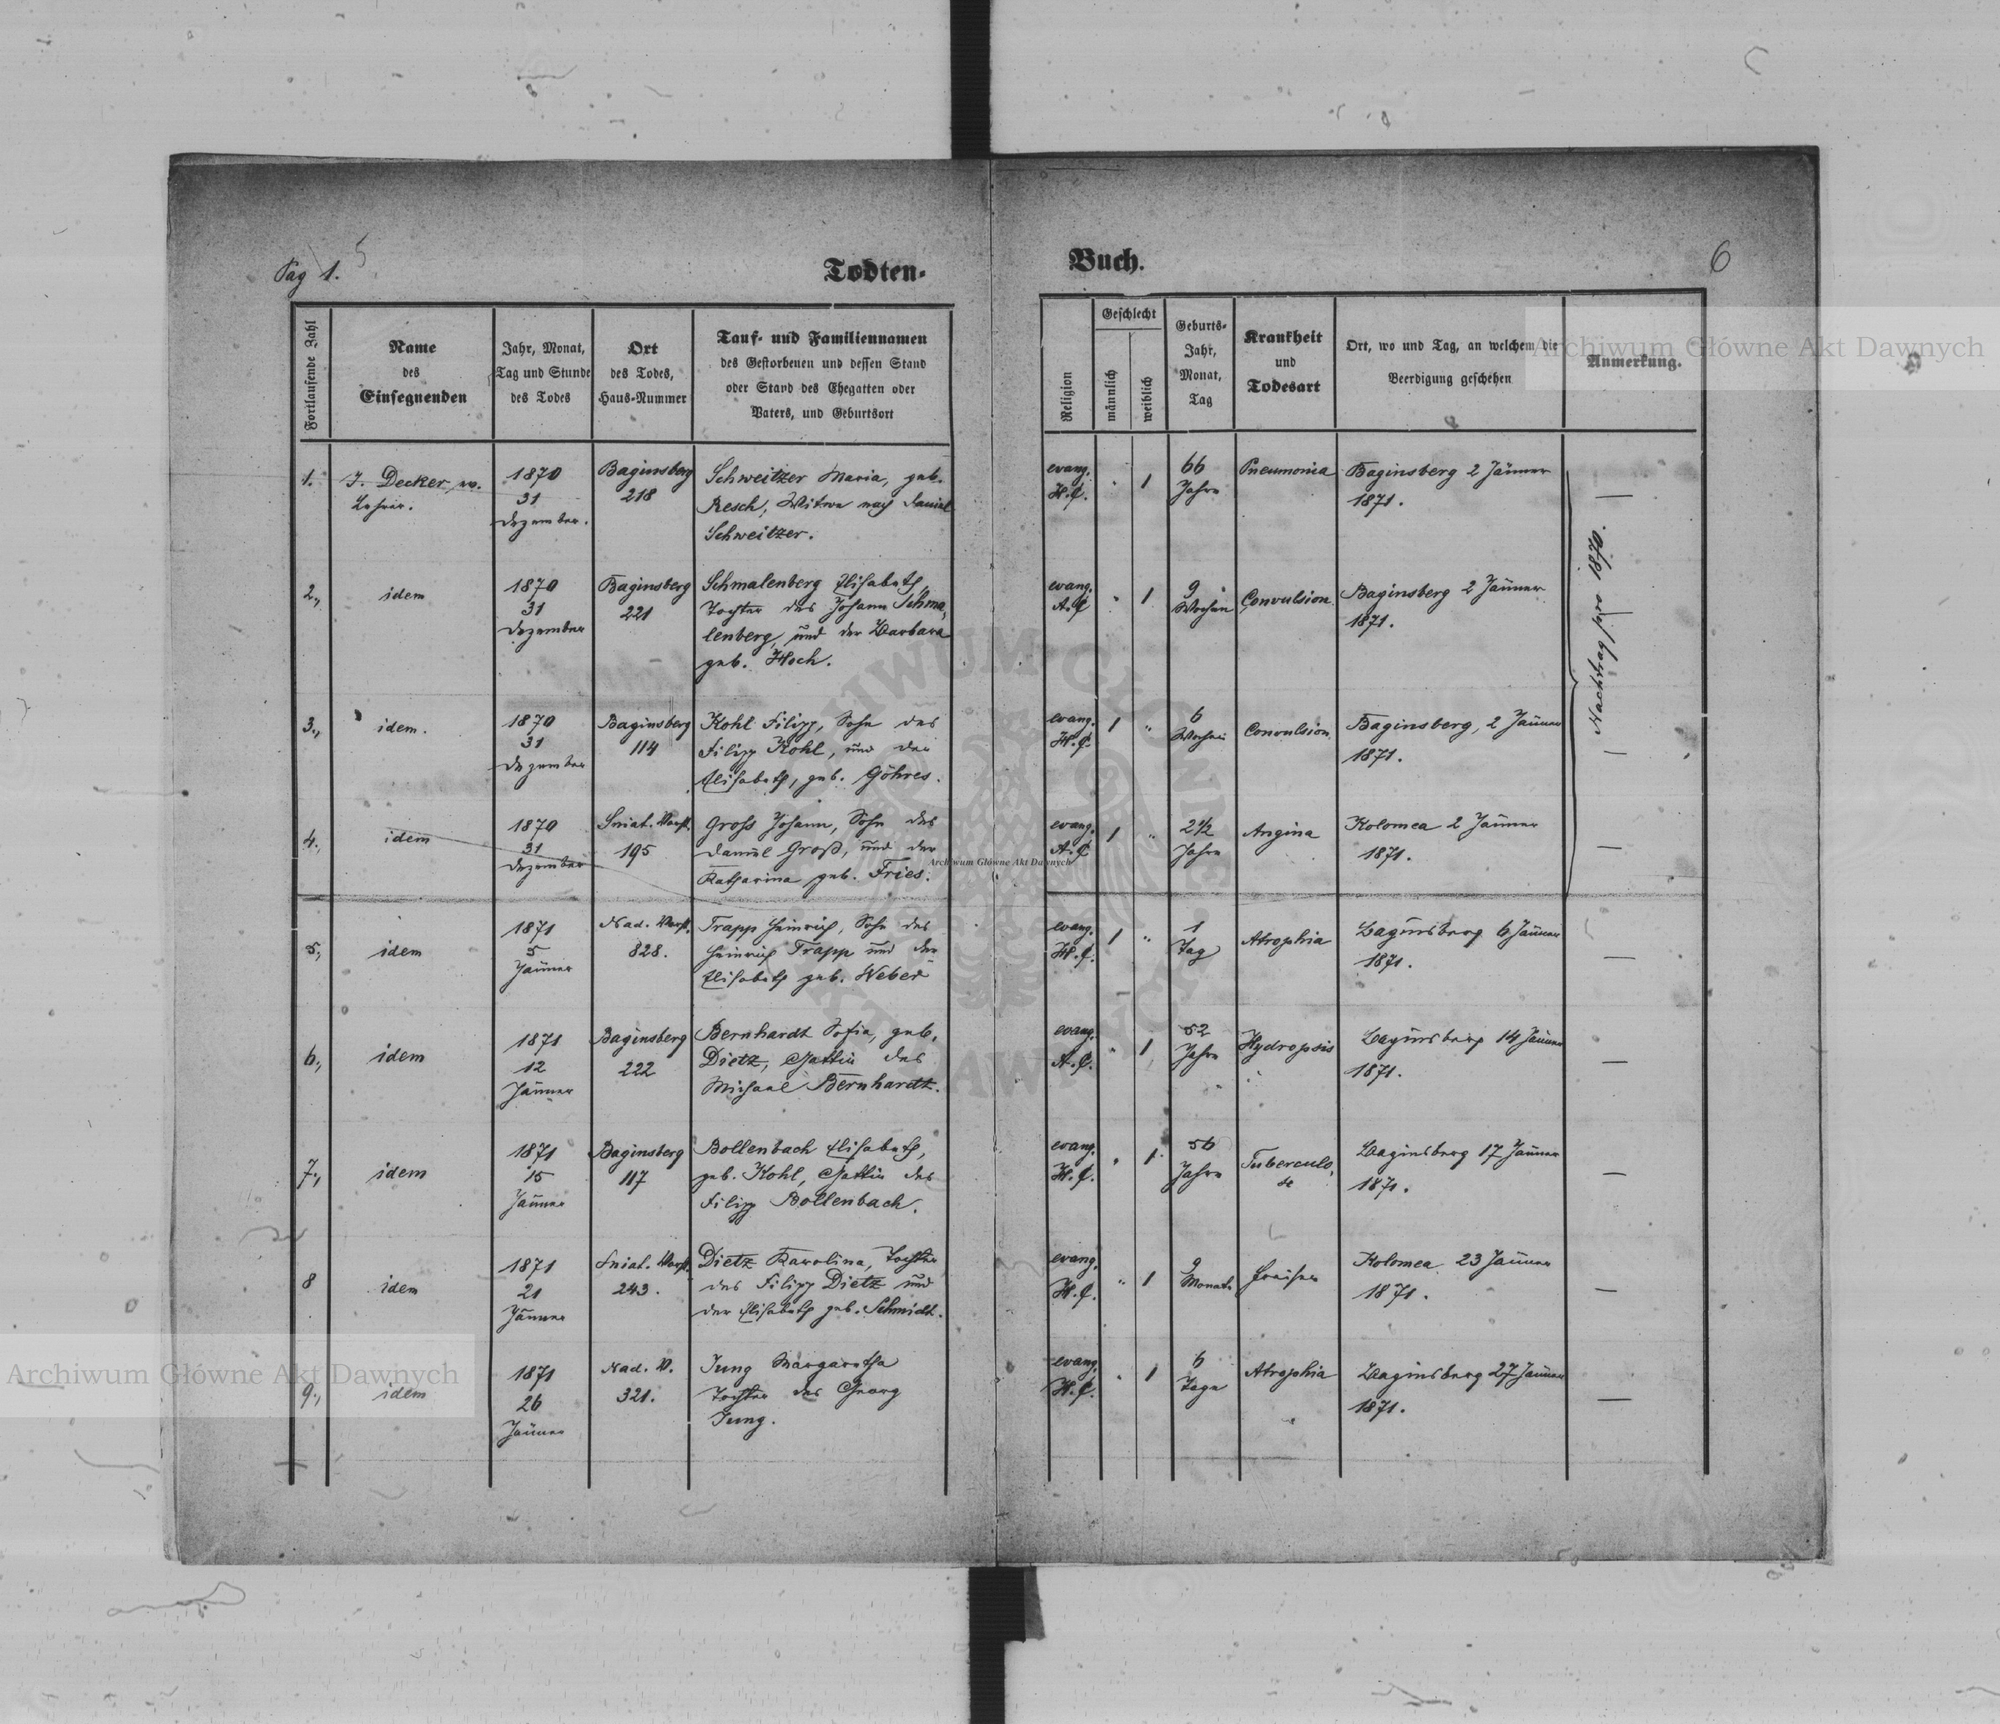 Pag 1. 5
Todten-
Buch.
6
Fortlaufende Zahl
Name
des
Einsegnenden
Jahr, Monat,
Tag und Stunde
des Todes
Ort
des Todes,
Haus-Nummer
Tauf- und Familiennamen
des Gestorbenen und dessen Stand
oder Stand des Ehegatten oder
Vaters, und Geburtsort
Religion
Geschlecht
männlich
weiblich
Geburts-
Jahr,
Monat,
Tag
Krankheit
und
Todesart
Ort, wo und Tag, an welchem die
Beerdigung geschehen
Anmerkung.
1.
J. Decker, ev.
Lehrer.
1870
31
Dezember.
Baginsberg
218
Schweitzer Maria, geb.
Resch, Witwe nach Daniel
Schweitzer.
evang.
H.C.
" 1
66
Jahre
Pneumonia
Baginsberg 2 Jänner
1871.
—
2.,
idem
1870
31
Dezember
Baginsberg
221
Schmalenberg Elisabeth,
Tochter des Johann Schma-
lenberg, und der Barbara
geb. Hoch.
evang.
A.C
" 1
9
Wochen
Convulsion
Baginsberg 2 Jänner
1871.
— Nachtrag pro 1870.
3.,
idem.
1870
31
Dezember
Baginsberg
114
Kohl Filipp, Sohn des
Filipp Kohl, und der
Elisabeth, geb. Göhres.
evang.
H.C.
1 "
6
Wochen
Convulsion
Baginsberg, 2 Jänner
1871.
4.,
idem
1870
31
Dezember
Sniat. Vorst.
195
Gross Johann, Sohn des
Daniel Groß, und der
Katharina geb. Fries.
evang.
A.C
1 "
2½
Jahre
Angina
Kolomea 2 Jänner
1871.
—
5.,
idem
1871
5
Jänner
Nad. Vorst.
828.
Trapp Heinrich, Sohn des
Heinrich Trapp und der
Elisabeth geb. Weber
evang.
H.C.
1 "
1
Tag
Atrophia
Baginsberg 6 Jänner
1871.
—
6.,
idem
1871
12
Jänner
Baginsberg
222
Bernhardt Sofia, geb.
Dietz, Gattin des
Michael Bernhardt.
evang.
A.C.
" 1
52
Jahre
Hydropsis
Baginsberg 14 Jänner
1871.
—
7.,
idem
1871
15
Jänner
Baginsberg
117
Bollenbach Elisabeth,
geb. Kohl, Gattin des
Filipp Bollenbach.
evang.
H.C.
" 1
56
Jahre
Tuberculo-
se
Baginsberg 17 Jänner
1871.
—
8
idem
1871
21
Jänner
Sniat. Vorst.
243.
Dietz Karolina, Tochter
des Filipp Dietz und
der Elisabeth geb. Schmidt.
evang.
H.C.
" 1
9
Monate
Fraisen
Kolomea 23 Jänner
1871.
—
9.,
idem
1871
26
Jänner
Nad. V.
321.
Jung Margaretha
Tochter des Georg
Jung.
evang.
H.C.
" 1
6
Tage
Atrophia
Baginsberg 27 Jänner
1871.
—
Archiwum Główne Akt Dawnych
Archiwum Główne Akt Dawnych
Archiwum Główne Akt Dawnych